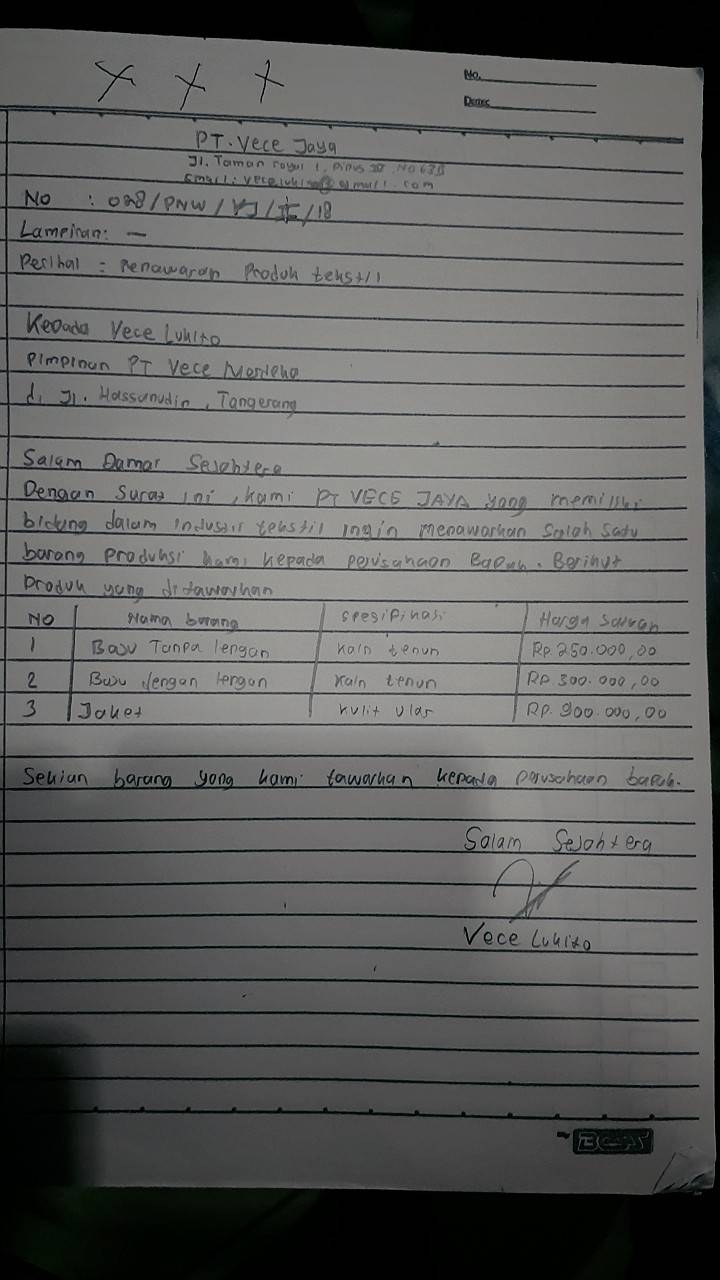 No.
Date:
PT. Vece Jaya
Jl. Taman royal 1, Pinus III, NO 63B
Email: @gmail.com
No : 028/PNW/VJ/ /18
Lampiran: —
Perihal = Penawaran Produk tekstil
Kepada Vece Lukito
Pimpinan PT Vece Merdeka
di Jl. Hassanudin, Tangerang
Salam Damai Sejahtera
Dengan Surat ini, kami PT VECE JAYA yang memiliki
bidang dalam industri tekstil ingin menawarkan Salah Satu
barang Produksi kami kepada perusahaan Bapak. Berikut
Produk yang ditawarkan
NO Nama barang spesifikasi Harga Satuan
1 Baju Tanpa lengan kain tenun Rp. 250.000,00
2 Baju dengan lengan kain tenun Rp. 300.000,00
3 Jaket kulit ular Rp. 900.000,00
Sekian barang yang kami tawarkan kepada perusahaan bapak.
Salam Sejahtera
Vece Lukito